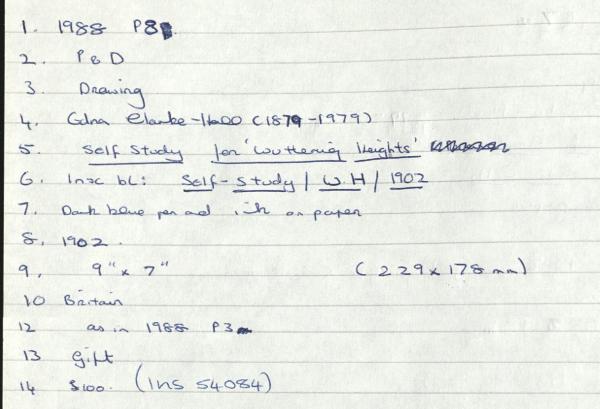 1. 1988 P8
2. P & D
3. Drawing
4. Edna Clarke-Hall (1879-1979)
5. Self Study for 'Wuthering Heights'
6. Insc bl: Self-Study / W.H / 1902
7. Dark blue pen and ink on paper
8. 1902.
9. 9" x 7" (229 x 178 mm)
10 Britain
12 as in 1988 P3
13 Gift
14 $100. (Ins 54084)